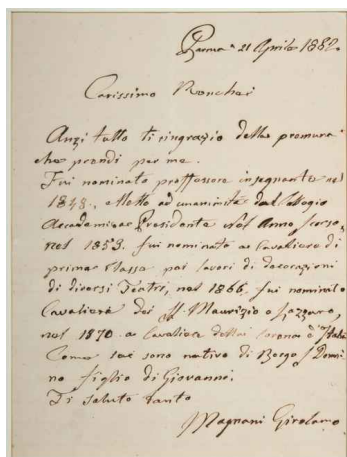 Parma 21 Aprile 1882.
Carissimo Ronchei
Anzi tutto ti ringrazio della premura
che prendi per me.
Fui nominato proffessore insegnante nel
1848, eletto ad unanimità dal Collegio
Accademico Presidente nel Anno scorso,
nel 1853. fui nominato a Cavaliere di
prima classe pei lavori di decorazioni
di diversi Teatri, nel 1866. fui nominato
Cavaliere dei SS. Maurizio e Lazzaro,
nel 1870 a Cavaliere della Corona d'Italia
Come sai sono nativo di Borgo S. Donni
no figlio di Giovanni.
Ti saluto tanto
Magnani Girolamo